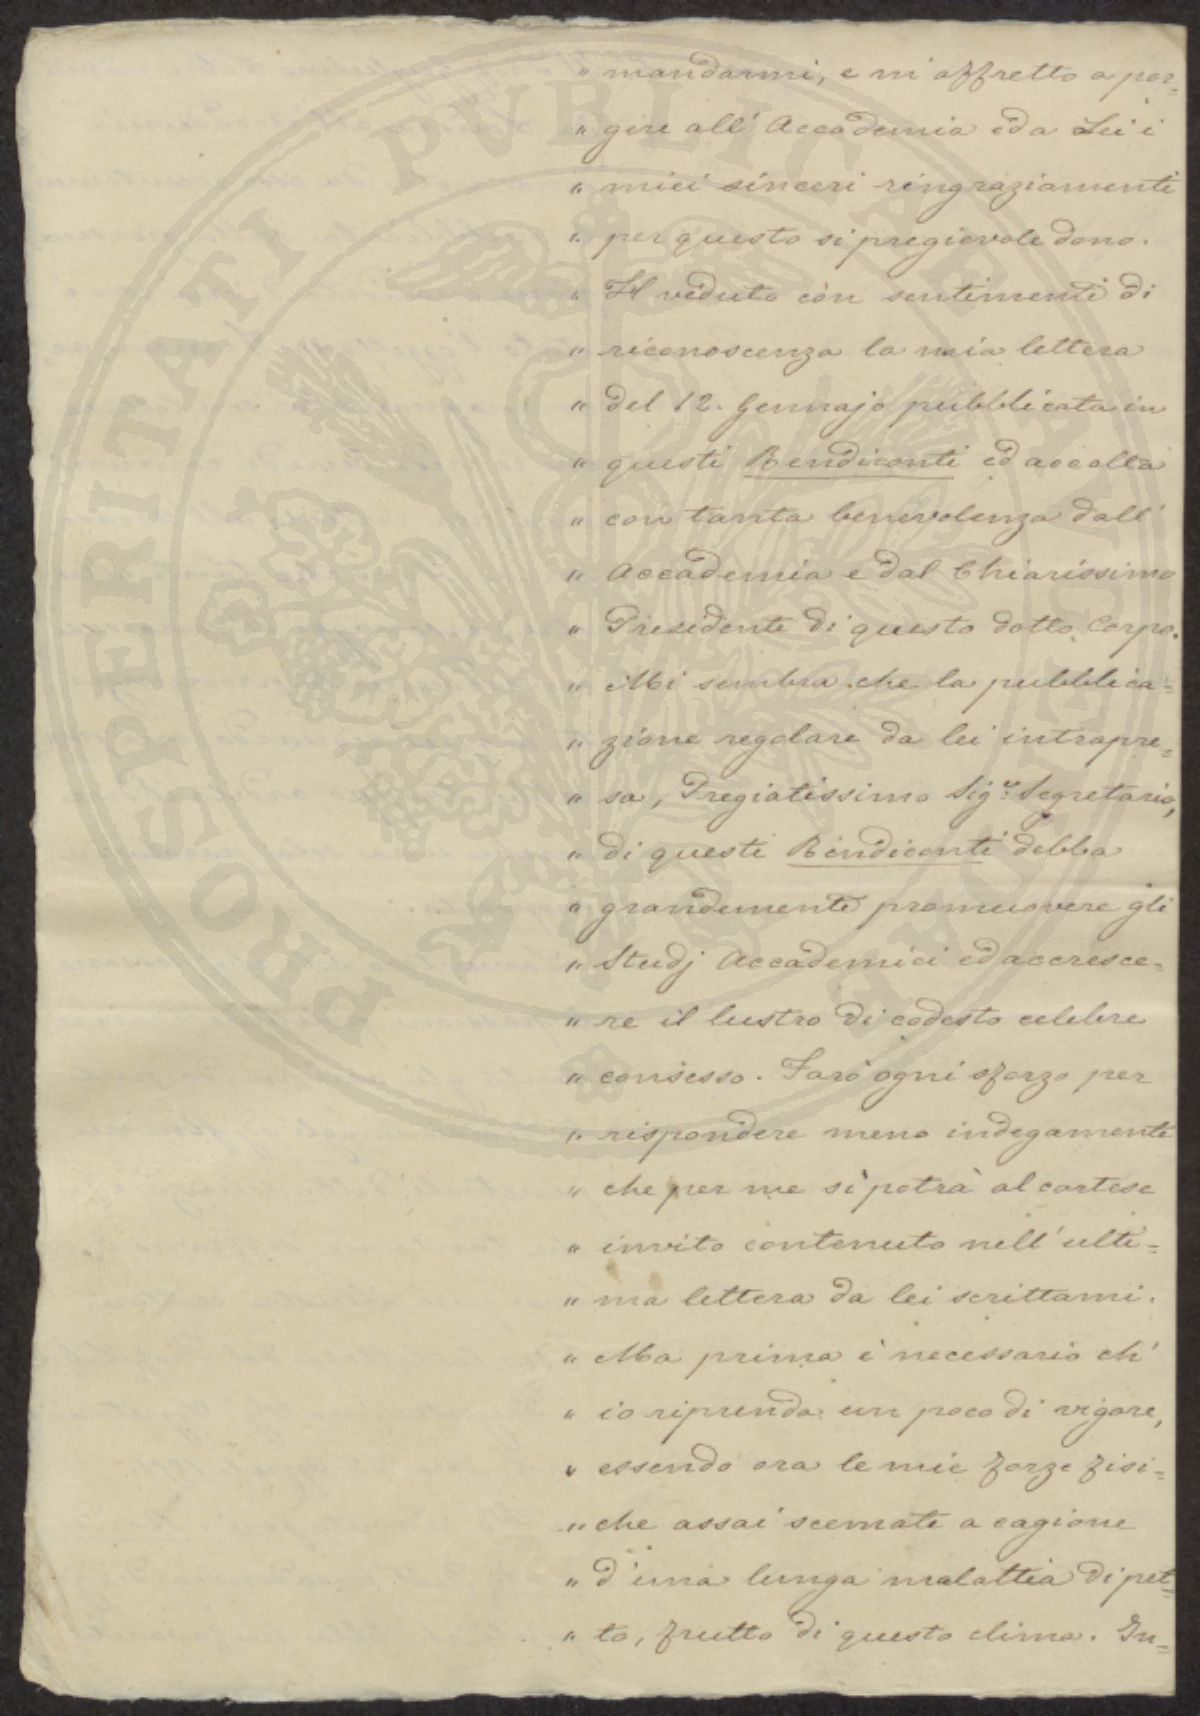 " mandarmi, e m'affretto a por=
" gere all' Accademia ed a Lei i
" miei sinceri ringraziamenti
" per questo si pregievole dono.
" Hò veduto con sentimenti di
" riconoscenza la mia lettera
" del 12. Gennajo pubblicata in
" questi Rendiconti ed accolta
" con tanta benevolenza dall'
" Accademia e dal Chiarissimo
" Presidente di questo dotto Corpo.
" Mi sembra che la pubblica=
" zione regolare da lei intrapre=
" sa, Pregiatissimo Sig.re Segretario,
" di questi Rendiconti debba
" grandemente promuovere gli
" Studj Accademici ed accresce=
" re il lustro di codesto celebre
" consesso. Farò ogni sforzo per
" rispondere meno indegamente
" che per me si potrà al cortese
" invito contenuto nell' ulti=
" ma lettera da lei scrittami.
" Ma prima è necessario ch'
" io riprenda un poco di vigore,
" essendo ora le mie forze fisi=
" che assai scemate a cagione
" d'una lunga malattia di pet=
" to, frutto di questo clima. In=
PROSPERITATI PUBLICAE AUGENDAE